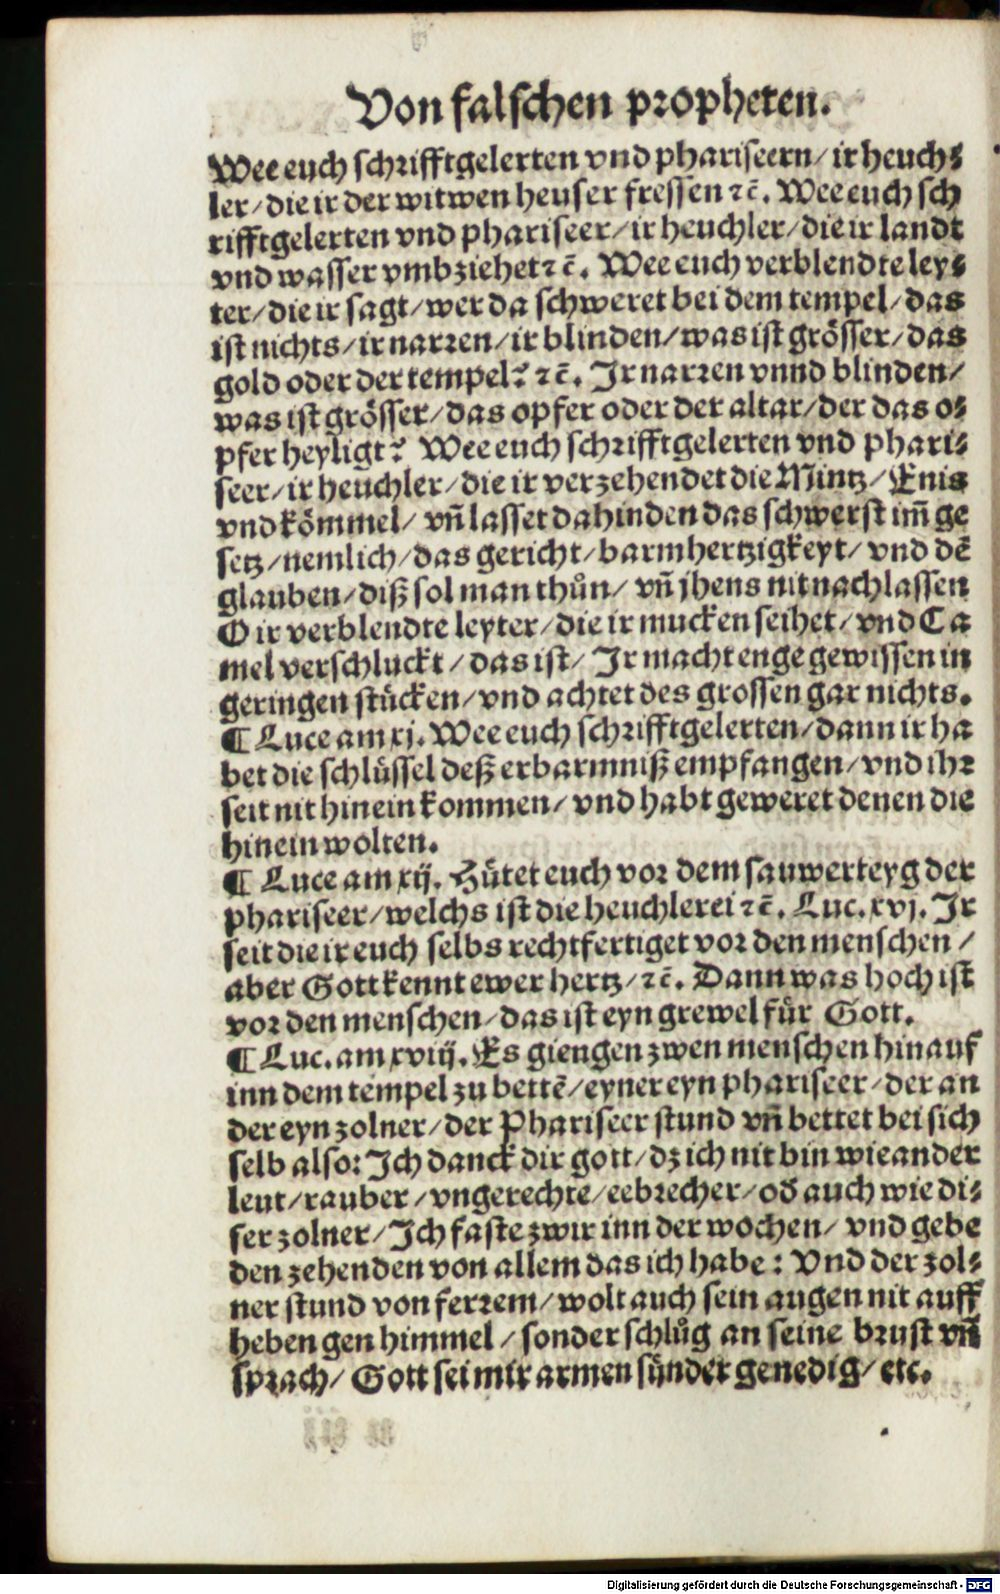 Von falschen propheten.
Wee euch schrifftgelerten vnd phariseern/ ir heuch⸗
ler/ die ir der witwen heuser fressen ⁊c̄. Wee euch sch
rifftgelerten vnd phariseer/ ir heuchler/ die ir landt
vnd wasser vmbziehet ⁊c̄. Wee euch verblendte ley⸗
ter/ die ir sagt/ wer da schweret bei dem tempel/ das
ist nichts/ ir narren/ ir blinden/ was ist grösser/ das
gold oder der tempel? ⁊c̄. Ir narren vnnd blinden/
was ist grösser/ das opfer oder der altar/ der das o⸗
pfer heyligt? Wee euch schrifftgelerten vnd phari⸗
seer/ ir heuchler/ die ir verzehendet die Mintz/ Enis
vnd kömmel/ vñ lasset dahinden das schwerst im̄ ge
setz/ nemlich/ das gericht/ barmhertzigkeyt/ vnd dē
glauben/ diß sol man thůn/ vñ jhens nit nachlassen
O ir verblendte leyter/ die ir mucken seihet/ vnd Ca
mel verschluckt/ das ist/ Ir macht enge gewissen in
geringen stücken/ vnd achtet des grossen gar nichts.
¶ Luce am xj. Wee euch schrifftgelerten/ dann ir ha
bet die schlüssel deß erbarmniß empfangen/ vnd ihr
seit nit hinein kommen/ vnd habt geweret denen die
hinein wolten.
¶ Luce am xij. Hütet euch vor dem sauwerteyg der
phariseer/ welchs ist die heuchlerei ⁊c̄. Luc. xvj. Ir
seit die ir euch selbs rechtfertiget vor den menschen/
aber Gott kennt ewer hertz/ ⁊c̄. Dann was hoch ist
vor den menschen/ das ist eyn grewel für Gott.
¶ Luc. am xviij. Es giengen zwen menschen hinauf
inn dem tempel zu bettē/ eyner eyn phariseer/ der an
der eyn zolner/ der Phariseer stund vñ bettet bei sich
selb also: Ich danck dir gott/ dz ich nit bin wie ander
leut/ rauber/ vngerechte/ eebrecher/ od̄ auch wie di⸗
ser zolner/ Ich faste zwir inn der wochen/ vnd gebe
den zehenden von allem das ich habe: Vnd der zol⸗
ner stund von ferrem/ wolt auch sein augen nit auff
heben gen himmel/ sonder schlůg an seine brust vñ
sprach/ Gott sei mir armen sünder genedig/ etc.
Digitalisierung gefördert durch die Deutsche Forschungsgemeinschaft - DFG